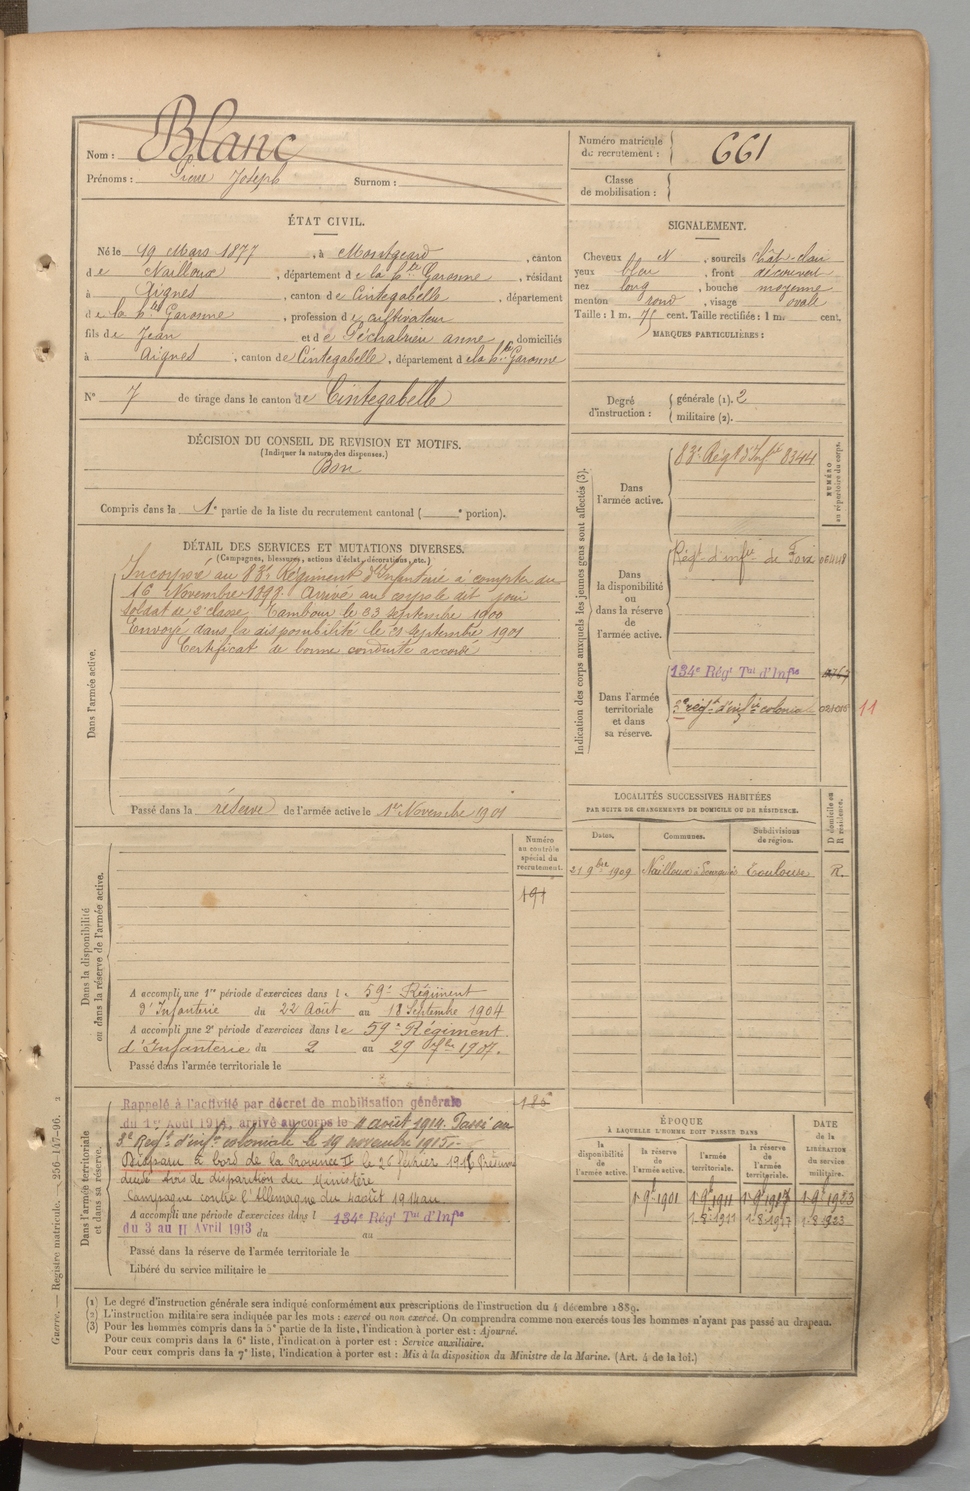 Nom : Blanc
Prénoms : Pierre Joseph Surnom :
Numéro matricule du recrutement : 661
Classe de mobilisation :
ÉTAT CIVIL.
Né le 19 Mars 1877, à Montgeard, canton
de Nailloux, département de la Hte Garonne, résidant
à Aignes, canton de Cintegabelle, département
de la Hte Garonne, profession de cultivateur
fils de Jean et de Péchalrieu anne, domiciliés
à Aignes, canton de Cintegabelle, département de la Hte Garonne
N° 7 de tirage dans le canton de Cintegabelle
SIGNALEMENT.
Cheveux N, sourcils chât-clair
yeux bleu, front découvert
nez long, bouche moyenne
menton rond, visage ovale
Taille : 1 m. 75 cent. Taille rectifiée : 1 m. cent.
MARQUES PARTICULIÈRES :
Degré d'instruction : générale (1). 2
militaire (2).
DÉCISION DU CONSEIL DE REVISION ET MOTIFS.
(Indiquer la nature des dispenses.)
Bon
Compris dans la 1e partie de la liste du recrutement cantonal ( e portion).
DÉTAIL DES SERVICES ET MUTATIONS DIVERSES.
(Campagnes, blessures, actions d'éclat, décorations, etc.)
Dans l'armée active.
Incorporé au 83e Régiment d'Infanterie à compter du
16 Novembre 1898. Arrivé au corps le dit jour
soldat de 2e classe. Tambour le 23 septembre 1900
Envoyé dans la disponibilité le 21 septembre 1901
Certificat de bonne conduite accordé
Passé dans la réserve de l'armée active le 1er Novembre 1901
Indication des corps auxquels les jeunes gens sont affectés (3).
NUMÉRO au répertoire du corps.
Dans l'armée active.
83e Régt d'Infie 8344
Dans la disponibilité ou dans la réserve de l'armée active.
Régt d'infie de Foix
Dans l'armée territoriale et dans sa réserve.
134e Régt Tal d'Infie
3e régt d'infie coloniale
11
LOCALITÉS SUCCESSIVES HABITÉES
PAR SUITE DE CHANGEMENTS DE DOMICILE OU DE RÉSIDENCE.
Dates. Communes. Subdivisions de région. D domicile ou R résidence.
21 9bre 1909 Nailloux Toulouse R.
Dans la disponibilité ou dans la réserve de l'armée active.
Numéro au contrôle spécial du recrutement.
191
A accompli une 1re période d'exercices dans le 59e Régiment
d'Infanterie du 22 Août au 18 Septembre 1904
A accompli une 2e période d'exercices dans le 59e Régiment
d'Infanterie du 2 au 29 1907.
Passé dans l'armée territoriale le
Dans l'armée territoriale et dans sa réserve.
Rappelé à l'activité par décret de mobilisation générale
du 1er Août 1914, arrivé au corps le 4 août 1914. Passé au
3e Régt d'infie coloniale le 19 novembre 1915.
Disparu à bord de la Provence II le 26 février 1916
avis de disparition du Ministère
Campagne contre l'Allemagne du 4 août 1914 au
A accompli une période d'exercices dans l 134e Régt Tal d'Infie
du 3 au 11 Avril 1913 du au
Passé dans la réserve de l'armée territoriale le
Libéré du service militaire le
ÉPOQUE
À LAQUELLE L'HOMME DOIT PASSER DANS
la disponibilité de l'armée active. la réserve de l'armée active. l'armée territoriale. la réserve de l'armée territoriale.
DATE de la LIBÉRATION du service militaire.
1er 9bre 1901 1er 9bre 1911 1er 9bre 1917 1er 9bre 1923
1-8-1911 1-8-1917 1-8-1923
(1) Le degré d'instruction générale sera indiqué conformément aux prescriptions de l'instruction du 4 décembre 1889.
(2) L'instruction militaire sera indiquée par les mots : exercé ou non exercé. On comprendra comme non exercés tous les hommes n'ayant pas passé au drapeau.
(3) Pour les hommes compris dans la 5e partie de la liste, l'indication à porter est : Ajourné.
Pour ceux compris dans la 6e liste, l'indication à porter est : Service auxiliaire.
Pour ceux compris dans la 7e liste, l'indication à porter est : Mis à la disposition du Ministre de la Marine. (Art. 4 de la loi.)
Guerre. — Registre matricule. — 256-147-96. 2